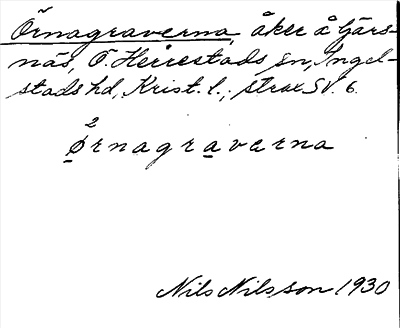 Örnagraverna, åker å Gärs-
näs, Ö. Herrestads sn, Ingel-
stads hd, Krist. l.; strax SV. 6.
2
Ørnagraverna
Nils Nilsson 1930